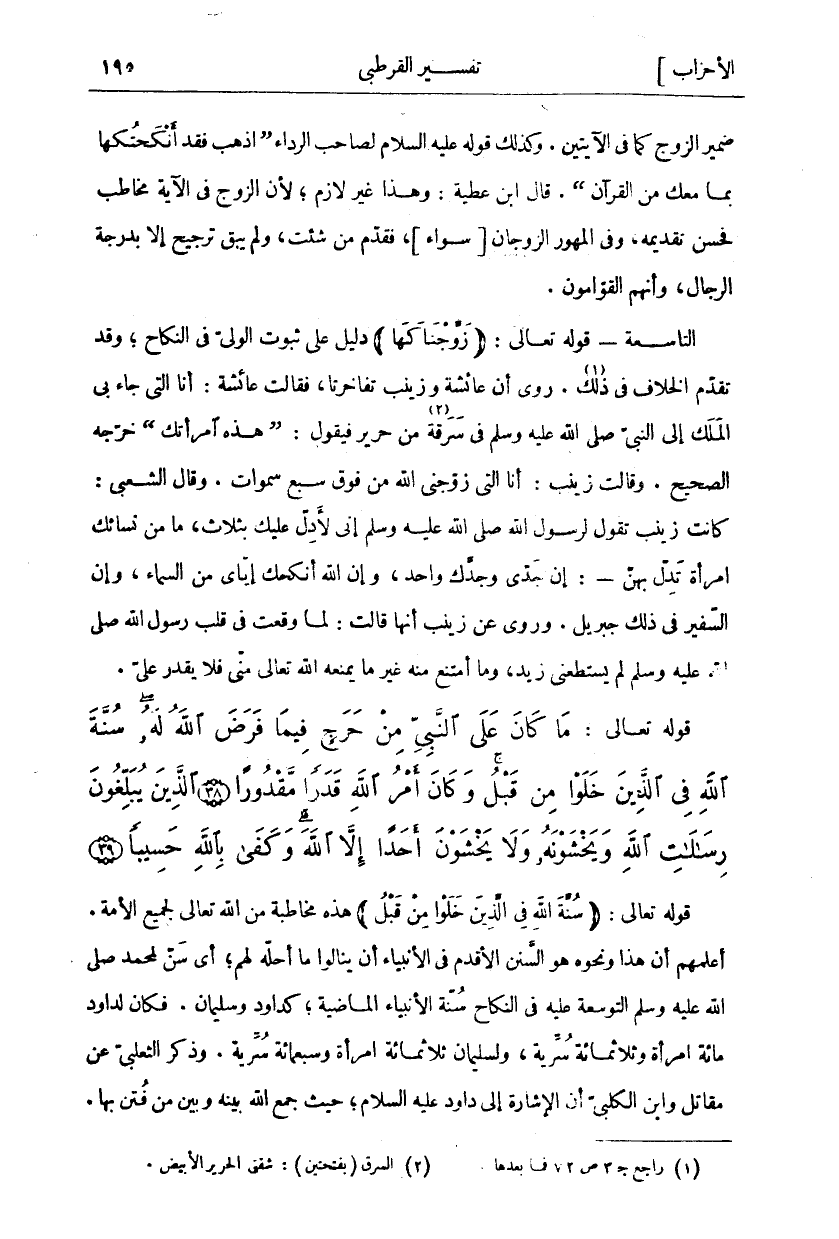 الأحزاب] تفسير القرطبى ١٩٥
ضمير الزوج كما فى الآيتين . وكذلك قوله عليه السلام لصاحب الرداء " اذهب فقد أَنْكَحْتُكها
بما معك من القرآن " . قال ابن عطية : وهذا غير لازم ؛ لأن الزوج فى الآية مخاطب
فحسن تقديمه، وفى المهور الزوجان [ سواء ]، فقدّم من شئت، ولم يبق ترجيح إلا بدرجة
الرجال، وأنهم القوّامون .
التاسعة – قوله تعالى : ﴿ زَوَّجْنَاكَهَا ﴾ دليل على ثبوت الولىّ فى النكاح ؛ وقد
تقدّم الخلاف فى ذلك (١) . روى أن عائشة وزينب تفاخرتا، فقالت عائشة : أنا التى جاء بى
المَلَك إلى النبىّ صلى الله عليه وسلم فى سَرَقة (٢) من حرير فيقول : " هذه آمرأتك " خرّجه
الصحيح . وقالت زينب : أنا التى زوّجنى الله من فوق سبع سموات . وقال الشعبى :
كانت زينب تقول لرسول الله صلى الله عليه وسلم إنى لأَدِلّ عليك بثلاث، ما من نسائك
امرأة تَدِلّ بهنّ – : إن جَدّى وجدّك واحد ، وإن الله أنكحك إيّاى من السماء ، وإن
السّفير فى ذلك جبريل . وروى عن زينب أنها قالت : لما وقعت فى قلب رسول الله صلى
الله عليه وسلم لم يستطعنى زيد، وما أمتنع منه غير ما يمنعه الله تعالى منّى فلا يقدر علىّ .
قوله تعالى : مَا كَانَ عَلَى ٱلنَّبِىِّ مِنْ حَرَجٍ فِيمَا فَرَضَ ٱللَّهُ لَهُۥ سُنَّةَ
ٱللَّهِ فِى ٱلَّذِينَ خَلَوْا مِن قَبْلُ وَكَانَ أَمْرُ ٱللَّهِ قَدَرًا مَّقْدُورًا ﴿٣٨﴾ ٱلَّذِينَ يُبَلِّغُونَ
رِسَٰلَٰتِ ٱللَّهِ وَيَخْشَوْنَهُۥ وَلَا يَخْشَوْنَ أَحَدًا إِلَّا ٱللَّهَ وَكَفَىٰ بِٱللَّهِ حَسِيبًا ﴿٣٩﴾
قوله تعالى : ﴿ سُنَّةَ اللهِ فِى الَّذِينَ خَلَوْا مِنْ قَبْلُ ﴾ هذه مخاطبة من الله تعالى لجميع الأمة .
أعلمهم أن هذا ونحوه هو السَّنن الأقدم فى الأنبياء أن ينالوا ما أحلّه لهم؛ أى سَنّ لمحمد صلى
الله عليه وسلم التوسعة عليه فى النكاح سُنّة الأنبياء الماضية ؛ كداود وسليمان . فكان لداود
مائة امرأة وثلاثمائة سُرِّية ، ولسليمان ثلاثمائة امرأة وسبعمائة سُرِّية . وذكر الثعلبىّ عن
مقاتل وابن الكلبىّ أن الإشارة إلى داود عليه السلام؛ حيث جمع الله بينه وبين من فُتن بها .
(١) راجع ج ٣ ص ٧٢ فما بعدها . (٢) السرق (بفتحتين) : شقق الحرير الأبيض .